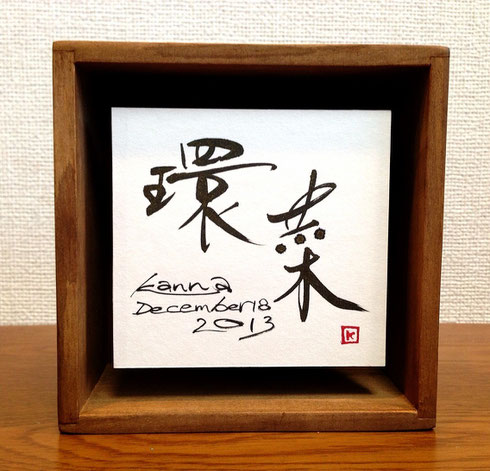 環菜
Kanna
December 18
2013
K